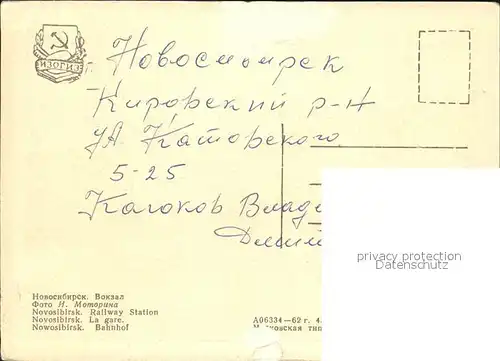 ИЗОГИЗ
г. Новосибирск
Кировский р-н
ул.
5-25
Влади
Дмит
privacy protection
Datenschutz
Новосибирск. Вокзал
Фото И. Моторина
Novosibirsk. Railway Station
Novosibirsk. La gare.
Nowosibirsk. Bahnhof
А06334—62 г. 4.
Московская тип